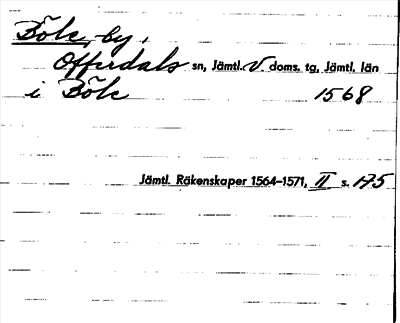 Böle, by,
Offerdals sn, Jämtl. V. doms. tg, Jämtl. län
i Böle 1568
Jämtl. Räkenskaper 1564–1571, II s. 175